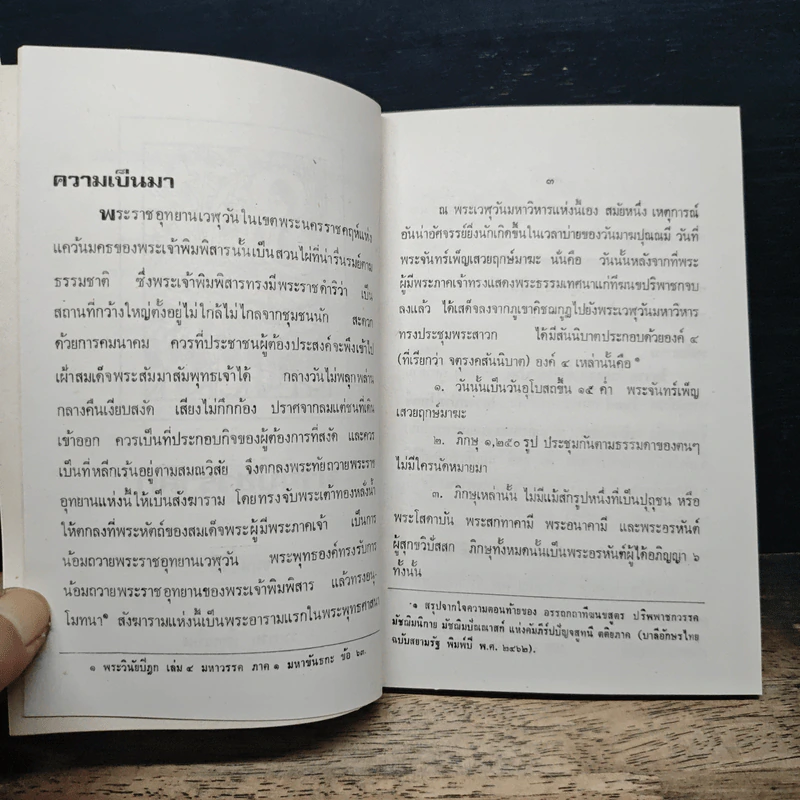 ความเป็นมา
พระราชอุทยานเวฬุวันในเขตพระนครราชคฤห์แห่ง
แคว้นมคธของพระเจ้าพิมพิสารนั้นเป็นสวนไผ่ที่น่ารื่นรมย์ตาม
ธรรมชาติ ซึ่งพระเจ้าพิมพิสารทรงมีพระราชดำริว่า เป็น
สถานที่กว้างใหญ่ตั้งอยู่ไม่ใกล้ไม่ไกลจากชุมชนนัก สะดวก
ด้วยการคมนาคม ควรที่ประชาชนผู้ต้องประสงค์จะพึงเข้าไป
เฝ้าสมเด็จพระสัมมาสัมพุทธเจ้าได้ กลางวันไม่พลุกพล่าน
กลางคืนเงียบสงัด เสียงไม่กึกก้อง ปราศจากลมแต่ชนที่เดิน
เข้าออก ควรเป็นที่ประกอบกิจของผู้ต้องการที่สงัด และควร
เป็นที่หลีกเร้นอยู่ตามสมณวิสัย จึงตกลงพระทัยถวายพระราช
อุทยานแห่งนี้ให้เป็นสังฆาราม โดยทรงจับพระเต้าทองหลั่งน้ำ
ให้ตกลงที่พระหัตถ์ของสมเด็จพระผู้มีพระภาคเจ้า เป็นการ
น้อมถวายพระราชอุทยานเวฬุวัน พระพุทธองค์ทรงรับการ
น้อมถวายพระราชอุทยานของพระเจ้าพิมพิสาร แล้วทรงอนุ-
โมทนา๑ สังฆารามแห่งนี้เป็นพระอารามแรกในพระพุทธศาสนา
๑ พระวินัยปิฎก เล่ม ๔ มหาวรรค ภาค ๑ มหาขันธกะ ข้อ ๖๓.
๓
ณ พระเวฬุวันมหาวิหารแห่งนี้เอง สมัยหนึ่ง เหตุการณ์
อันน่าอัศจรรย์ยิ่งนักเกิดขึ้นในเวลาบ่ายของวันมาฆปุณณมี วันที่
พระจันทร์เพ็ญเสวยฤกษ์มาฆะ นั่นคือ วันนั้นหลังจากที่พระ
ผู้มีพระภาคเจ้าทรงแสดงพระธรรมเทศนาแก่ทีฆนขปริพาชกจบ
ลงแล้ว ได้เสด็จลงจากภูเขาคิชฌกูฏไปยังพระเวฬุวันมหาวิหาร
ทรงประชุมพระสาวก ได้มีสันนิบาตประกอบด้วยองค์ ๔
(ที่เรียกว่า จตุรงคสันนิบาต) องค์ ๔ เหล่านั้นคือ๑
๑. วันนั้นเป็นวันอุโบสถขึ้น ๑๕ ค่ำ พระจันทร์เพ็ญ
เสวยฤกษ์มาฆะ
๒. ภิกษุ ๑,๒๕๐ รูป ประชุมกันตามธรรมดาของตนๆ
ไม่มีใครนัดหมายมา
๓. ภิกษุเหล่านั้น ไม่มีแม้สักรูปหนึ่งที่เป็นปุถุชน หรือ
พระโสดาบัน พระสกทาคามี พระอนาคามี และพระอรหันต์
ผู้สุกขวิปัสสก ภิกษุทั้งหมดนั้นเป็นพระอรหันต์ผู้ได้อภิญญา ๖
ทั้งนั้น
๑ สรุปจากใจความตอนท้ายของ อรรถกถาทีฆนขสูตร ปริพพาชกวรรค
มัชฌิมนิกาย มัชฌิมปัณณาสก์ แห่งคัมภีร์ปปัญจสูทนี ตติยภาค (บาลีอักษรไทย
ฉบับสยามรัฐ พิมพ์ปี พ.ศ. ๒๔๖๒).